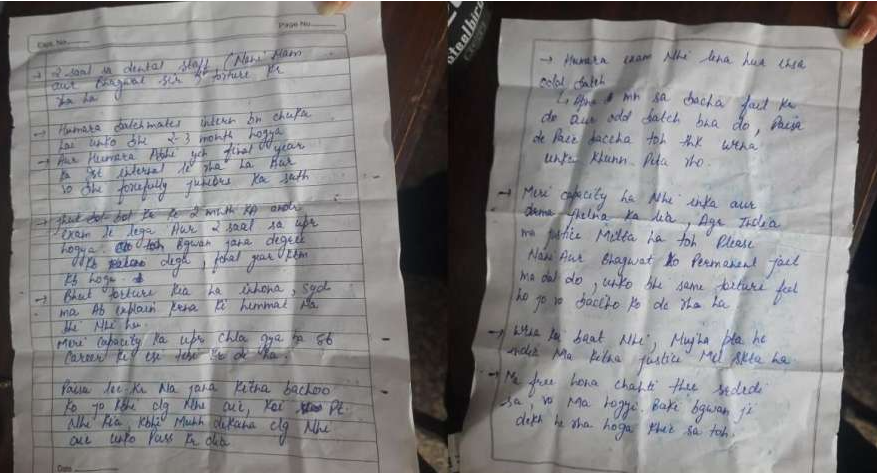 Page No
Date No.
→ 2 saal sa dental staff, (Nani Mam
aur Bhagwat sir) torture kr
rha ha
→ Humara batchmates intern bn chuka
hai unko bhi 2-3 month hogya
→ Aur Humara Abhi yeh final year
ka 1st internal le rha ha Aur
vo bhe forcefully juniors ka sath
→ jhut bol bol kr ke 2 mnth KA andr
exam le lega Aur 2 saal sa upr
hogya. toh Bgwan jana degree
kb dega, final year kbm
kb hoga
→ Bhut torture kia ha inhona,
ma Ab explain krna ki himmat Na
bhe Nhi hu.
Meri capacity ka upr chla gya ha sb
Career ki
Paisa lee kr Na jana kitna bachoo
ko jo kbhi clg Nhe aie, koi
Nhi kia, kbhi Munh dikana clg Nhi
aie unko Pass kr dia
Date
steelbird
→ Humara exam Nhi lena hua
odd batch
Apne mn sa bacha fail kr
do aur odd batch bna do, Paisa
de paie baccha toh thk wrna
unka khunn Pita rho.
→ Meri capacity ha Nhi inka aur
jhelna ka lia, Agr India
ma justice Milta ha toh Please
Nani Aur Bhagwat ko Permanent jail
ma dal do, unko bhe same torture feel
ho jo vo baccho ko de rha ha
→ wrsa koi baat Nhi, Mujha pta he
India Ma kitna justice Mil skta ha.
→ Ma free hona chahti thee
sa vo Ma hogyi. Baki bgwan ji
dekh he rha hoga khi sa toh.